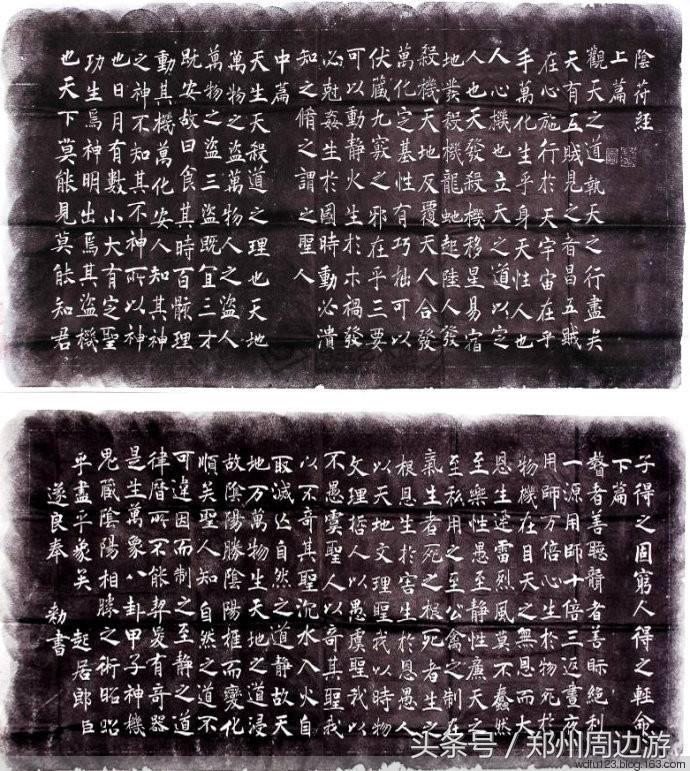 陰符經
上篇
觀天之道執天之行盡矣
天有五賊見之者昌五賊
在心施行於天宇宙在乎
手萬化生乎身天性人也
人心機也立天之道以定
人也天發殺機移星易宿
地發殺機龍虵起陸人發
殺機天地反覆天人合發
萬化定基性有巧拙可以
伏藏九竅之邪在乎三要
可以動靜火生於木禍發
必剋姦生於國時動必潰
知之脩之謂之聖人
中篇
天生天殺道之理也天地
萬物之盜萬物人之盜人
萬物之盜三盜既宜三才
既安故曰食其時百骸理
動其機萬化安人知其神
之神不知其不神所以神
也日月有數小大有定聖
功生焉神明出焉其盜機
也天下莫能見莫能知君
子得之固窮人得之輕命
下篇
瞽者善聽聾者善眎絕利
一源用師十倍三返晝夜
用師万倍心生於物死於
物機在目天之無恩而大
恩生迅雷烈風莫不蠢然
至樂性愚至靜性廉天之
至私用之至公禽之制在
氣生者死之根死者生之
根恩生於害生於恩愚人
以天地文理聖我以時物
文理哲人以愚虞聖我以
不愚虞聖人以奇其聖我
以不奇其聖沉水入火自
取滅亡自然之道靜故天
地万萬物生天地之道浸
故陰陽勝陰陽推而變化
順矣聖人知自然之道不
可違因而制之至靜之道
律曆所不能契爰有奇器
是生萬象八卦甲子神機
鬼藏陰陽相勝之術昭昭
乎盡乎象矣 起居郎臣
遂良奉 勅書
头条号/郑州周边游
wdfu123.blog.163.com